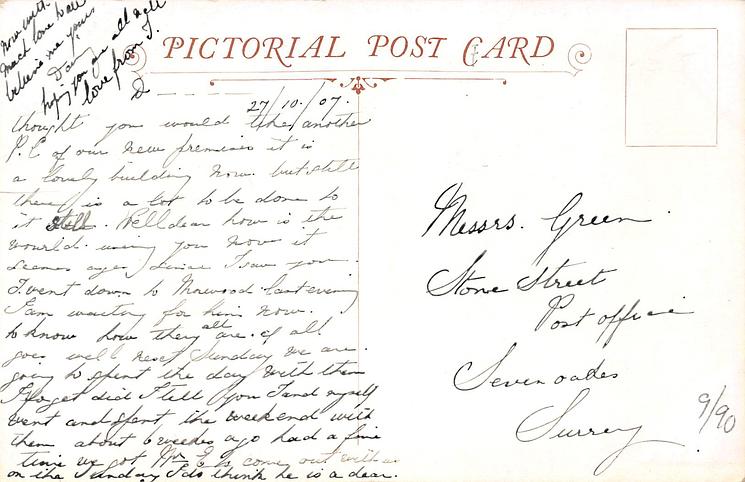 PICTORIAL POST CARD
27/10/07.
I thought you would like another
P.C of our new premises it is
a lovely building now. but still
there is a lot to be done to
it still. Well dear how is the
wourld using you now it
seems ages since I saw you.
T. went down to Norwood last evening
I am waiting for him now.
to know how they all are. if all
goes well next Sunday we are
going to spent the day with them
I forget did I tell you T and myself
went and spent the weekend with
them about 6 weeks ago had a fine
time we got Mr to come out with us
on the Sunday I do think he is a dear.
Now with
much love to all
believe me yours
hoping you are all well
love from T.
Messrs. Green
Stone Street
Post office
Sevenoakes
Surrey
9/90